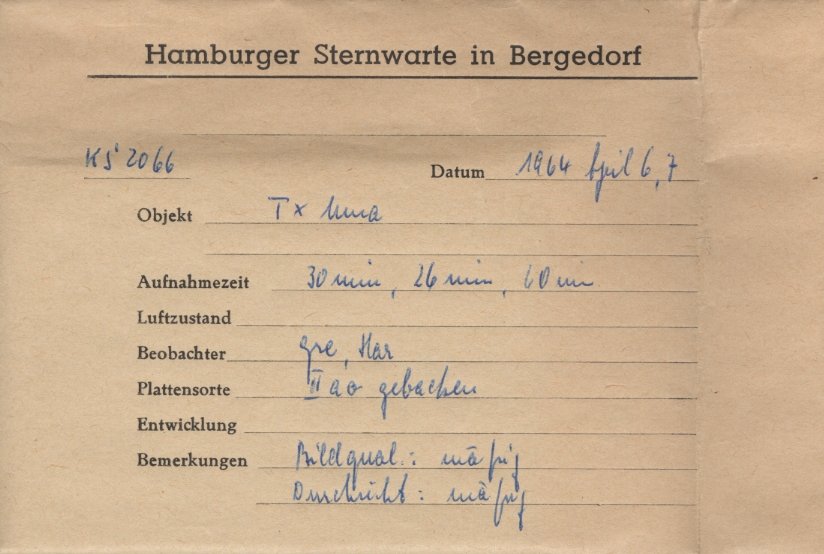 Hamburger Sternwarte in Bergedorf
KS 2066 Datum 1964 April 6,7
Objekt TX Uma
Aufnahmezeit 30 min, 26 min, 60 min
Luftzustand
Beobachter Gre, Har
Plattensorte IIao gebacken
Entwicklung
Bemerkungen Bildqual.: mäßig
Durchsicht: mäßig